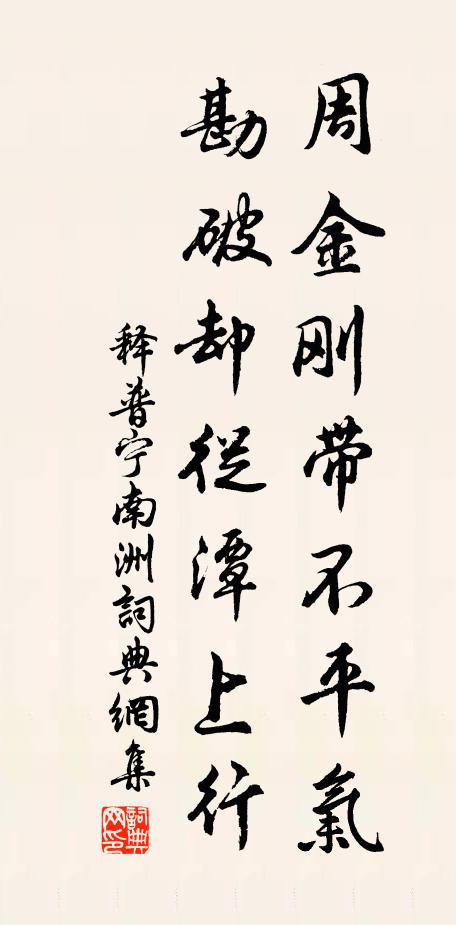 周金刚带不平氣
勘破却從潭上行
释普宁南洲詞典網集
詞典网印